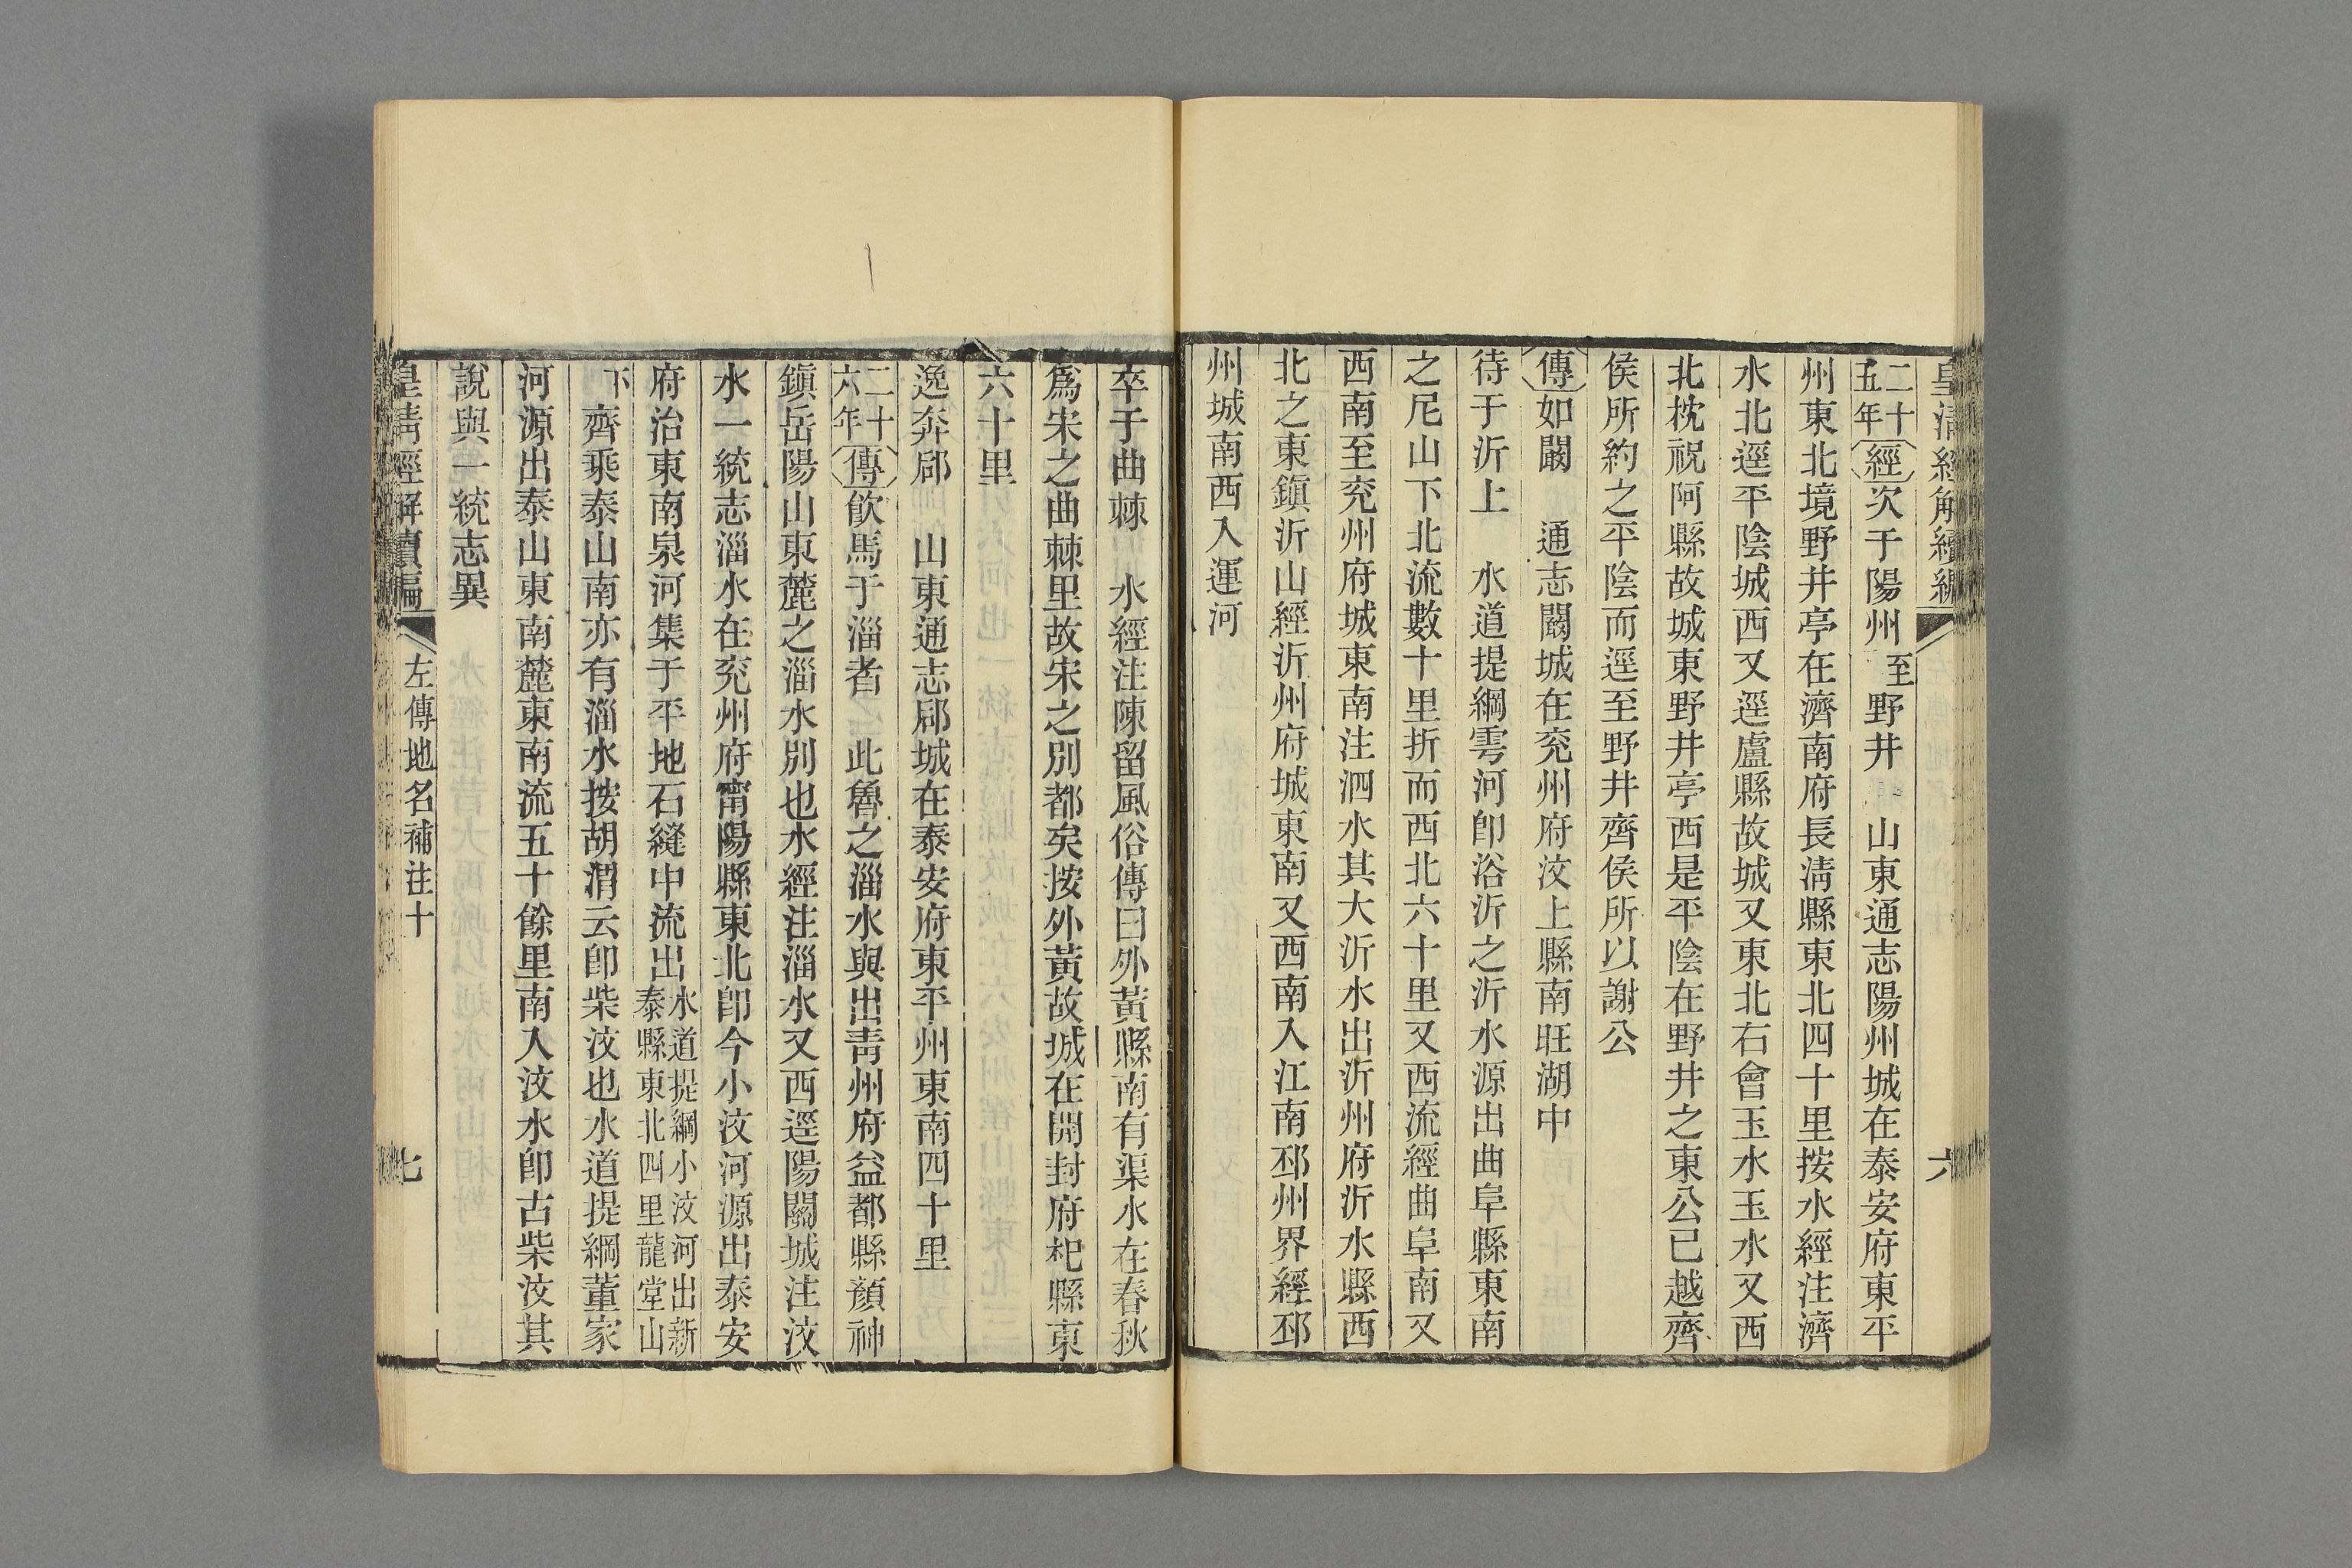 皇清經解續編 六
二十五年經次于陽州至野井 山東通志陽州城在泰安府東平
州東北境野井亭在濟南府長清縣東北四十里按水經注濟
水北逕平陰城西又逕盧縣故城又東北右會玉水玉水又西
北枕祝阿縣故城東野井亭西是平陰在野井之東公已越齊
侯所約之平陰而逕至野井齊侯所以謝公
傳如闞 通志闞城在兖州府汶上縣南旺湖中
待于沂上 水道提綱雩河卽浴沂之沂水源出曲阜縣東南
之尼山下北流數十里折而西北六十里又西流經曲阜南又
西南至兖州府城東南注泗水其大沂水出沂州府沂水縣西
北之東鎮沂山經沂州府城東南又西南入江南邳州界經邳
州城南西入運河
卒于曲棘 水經注陳留風俗傳曰外黃縣南有渠水在春秋
爲宋之曲棘里故宋之別都矣按外黃故城在開封府杞縣東
六十里
逸奔郈 山東通志郈城在泰安府東平州東南四十里
二十六年傳飮馬于淄者 此魯之淄水與出靑州府益都縣顏神
鎭岳陽山東麓之淄水別也水經注淄水又西逕陽關城注汶
水一統志淄水在兖州府甯陽縣東北卽今小汶河源出泰安
府治東南泉河集于平地石縫中流出水道提綱小汶河出新泰縣東北四里龍堂山
下齊乘泰山南亦有淄水按胡渭云卽柴汶也水道提綱董家
河源出泰山東南麓東南流五十餘里南入汶水卽古柴汶其
說與一統志異
皇清經解續編 左傳地名補注十 七